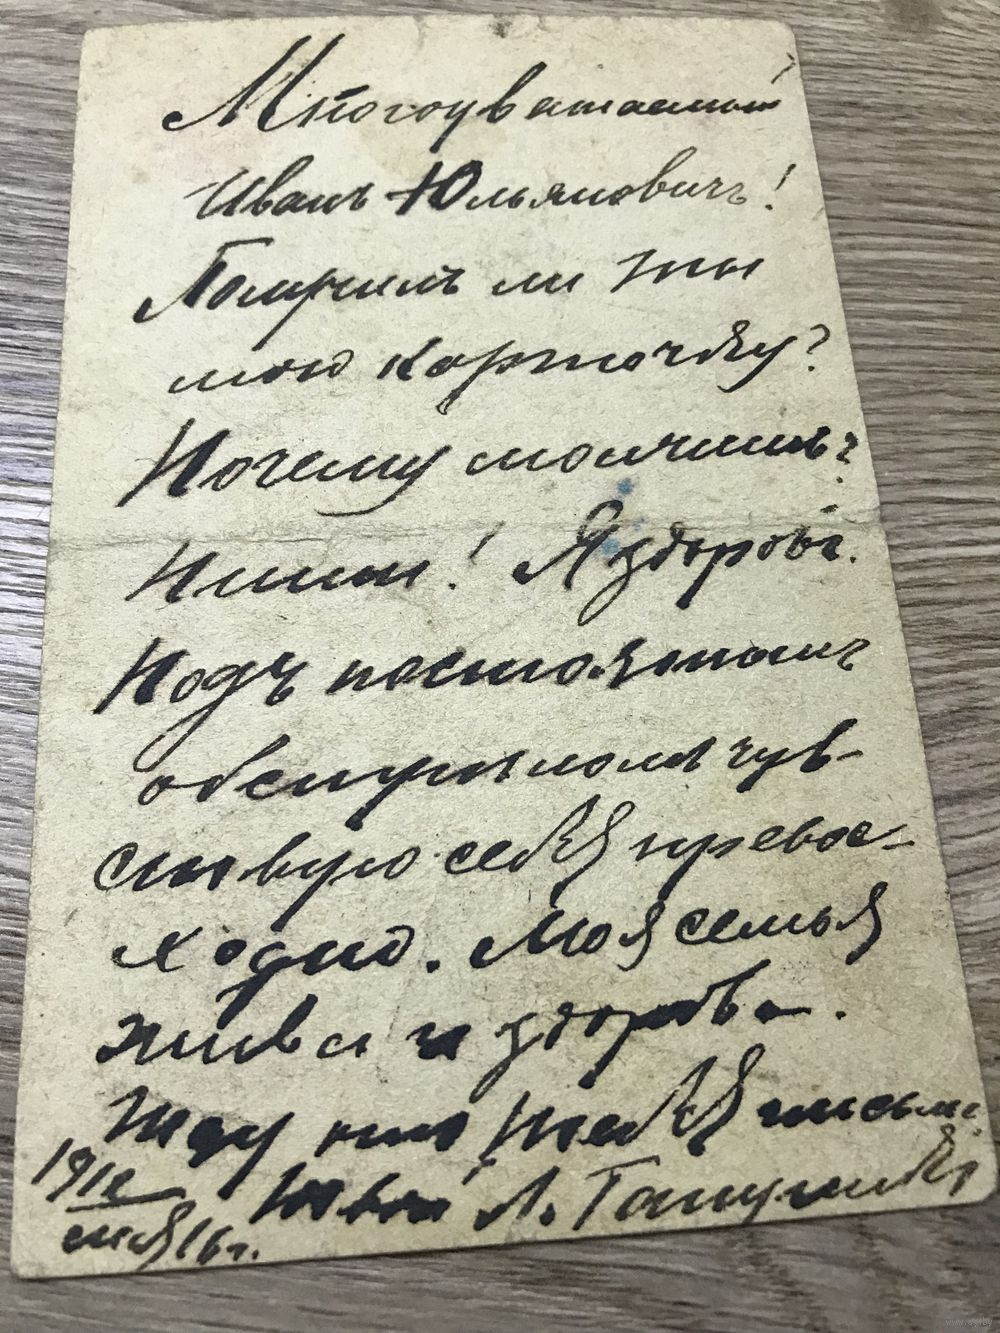 Многоуважаемый
Иванъ Юльяновичъ!
Получилъ ли ты
мою карточку?
Почему молчишь?
Пиши! Я здоровъ.
Подъ постояннымъ
обстрѣломъ чув-
ствую себя превос-
ходно. Моя семья
жива и здорова.
Жду отъ тебя письма.
Твой Л.
мая 16 г.